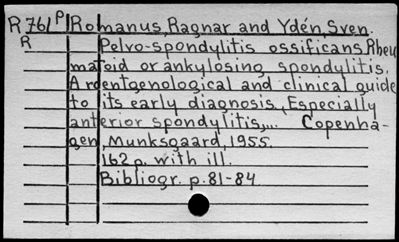 R 761 P Romanus, Ragnar and Ydén, Sven.
R Pelvo-spondylitis ossificans Rheu
matoid or ankylosing spondylitis.
A roentgenological and clinical guide
to its early diagnosis, Especially
anterior spondylitis,... Copenha-
gen, Munksgaard, 1955.
162 p. with ill.
Bibliogr. p. 81-84.